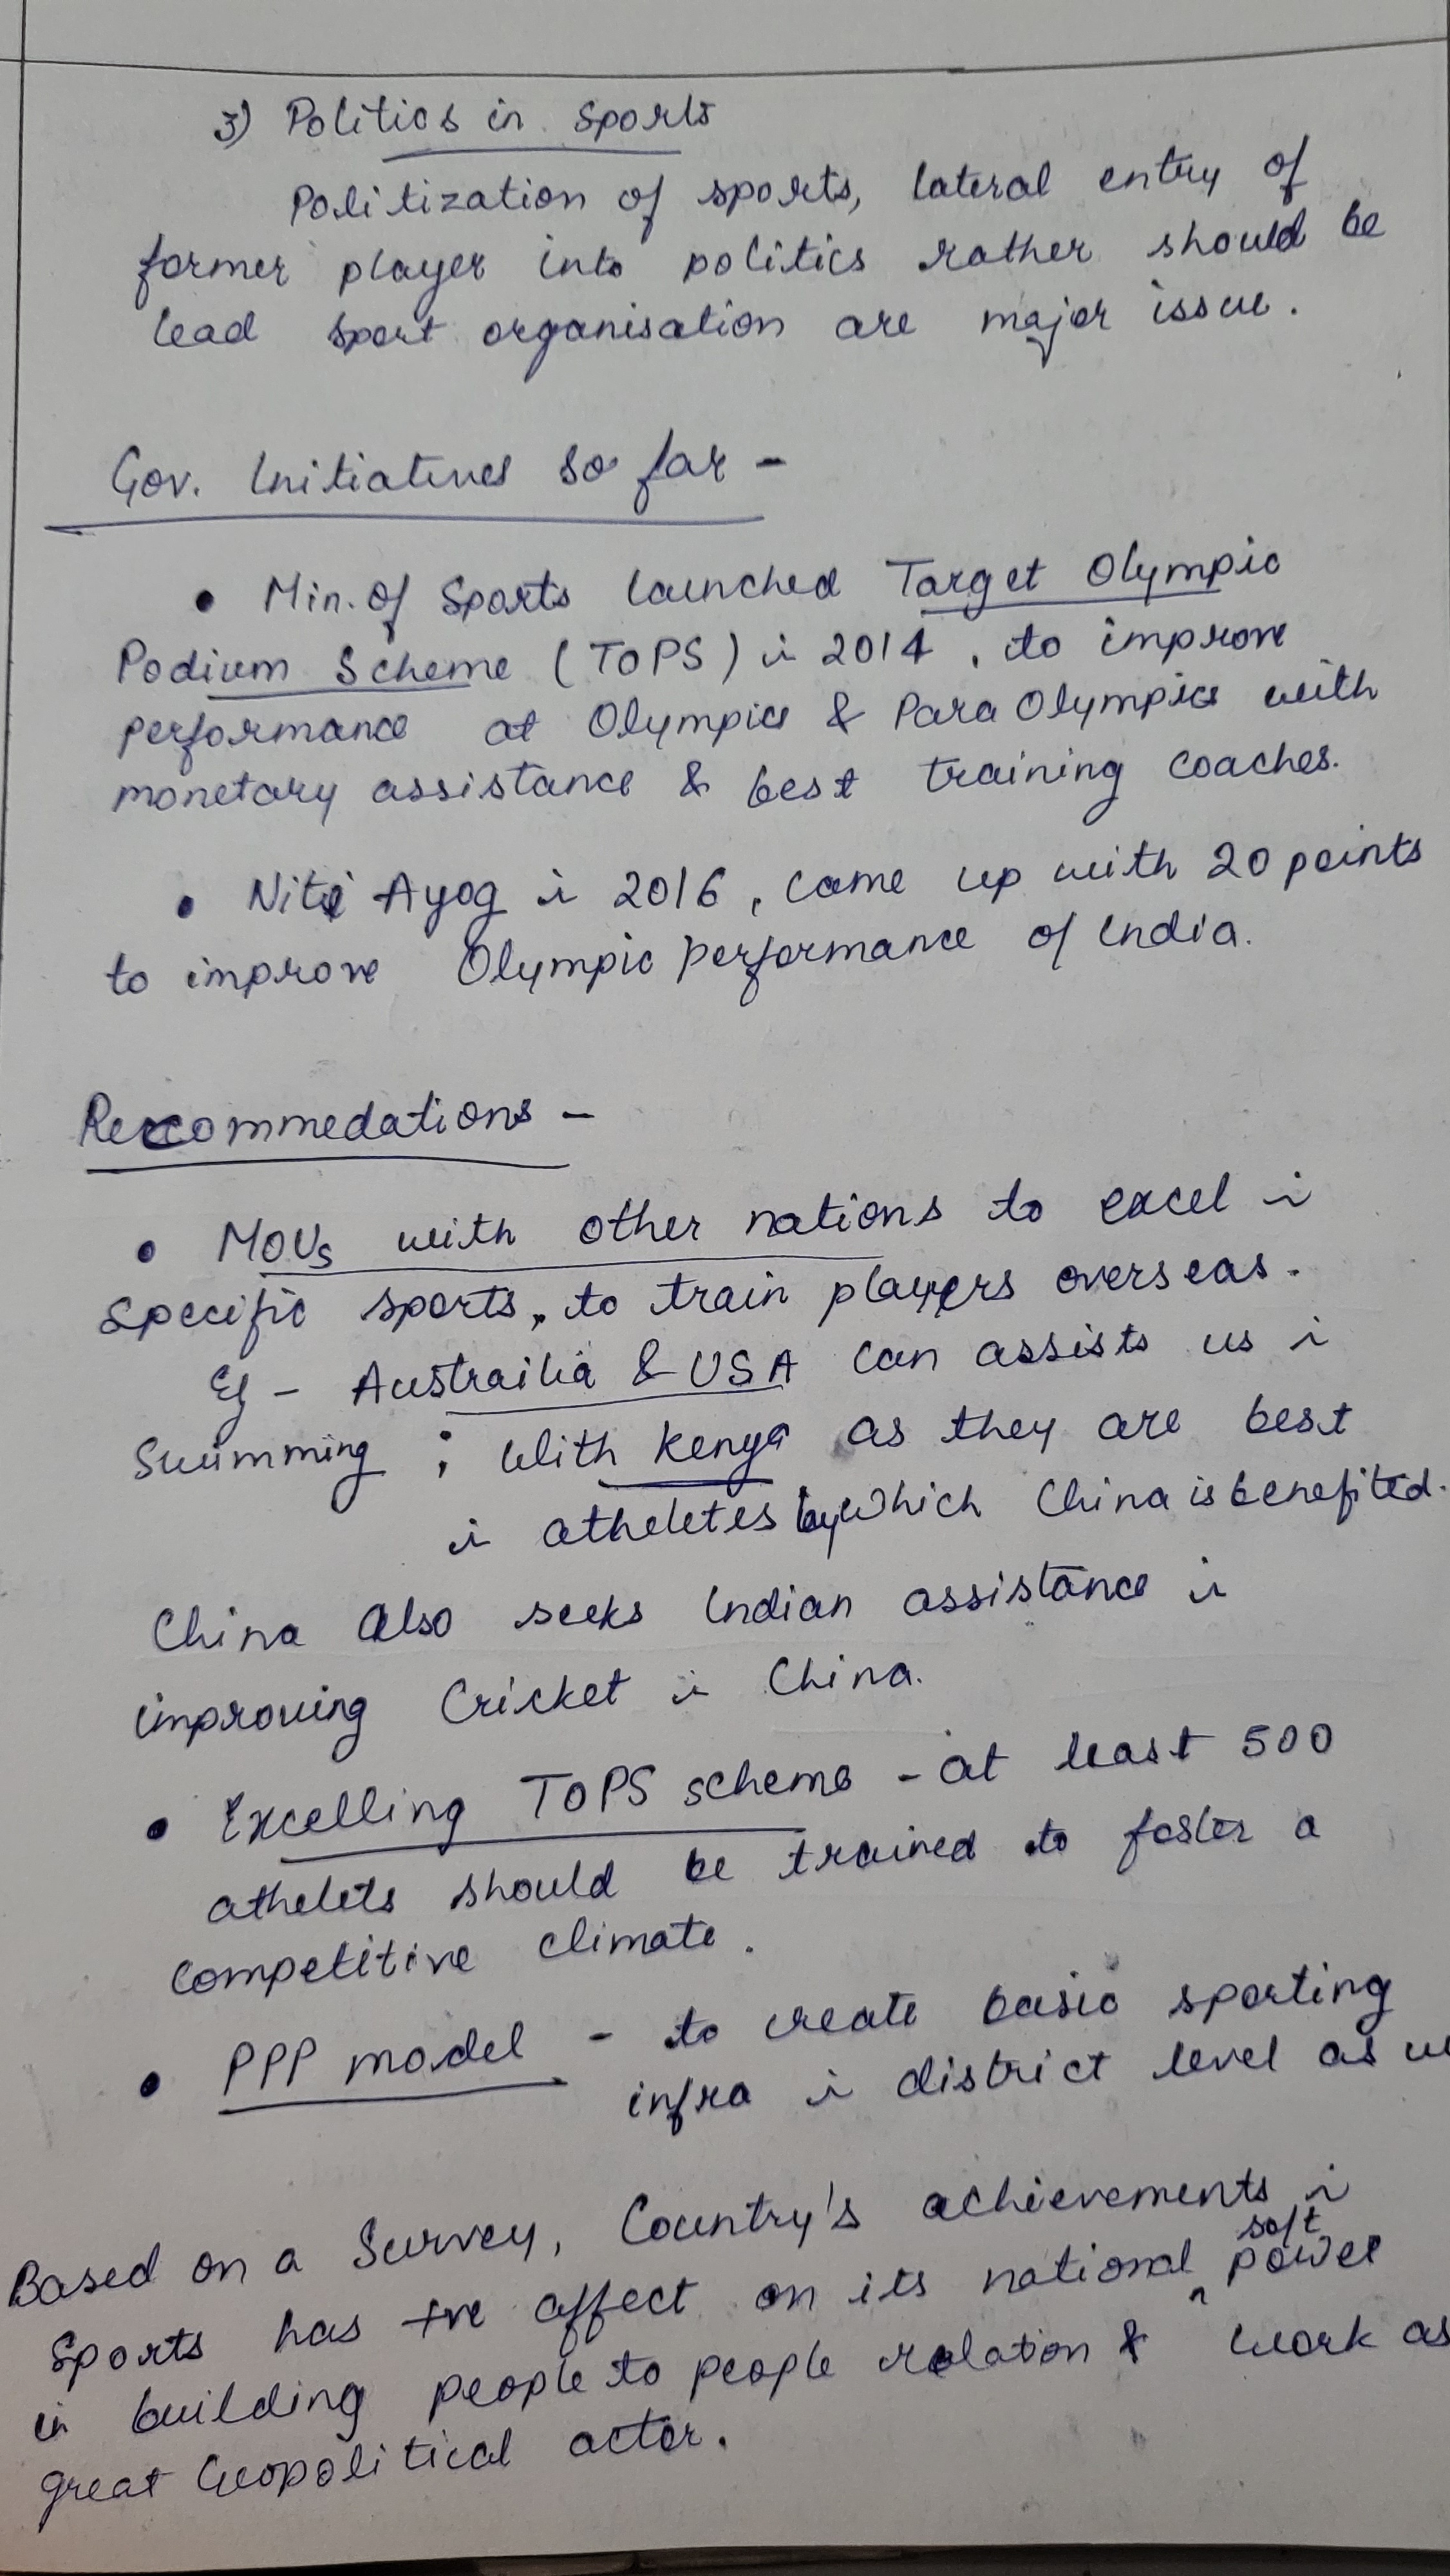 3) Politics in Sports
Politization of sports, lateral entry of
former player into politics rather should be
lead sport organisation are major issue.
Gov. Initiatives so far -
• Min. of Sports launched Target Olympic
Podium Scheme (TOPS) in 2014, to improve
performance at Olympics & Para Olympics with
monetary assistance & best training coaches.
• Niti Ayog in 2016, came up with 20 points
to improve Olympic performance of India.
Reccommedations -
• MOUs with other nations to excel in
Specific sports, to train players overseas.
Eg - Austrailia & USA can assists us in
Swimming ; With Kenya as they are best
in atheletes by which China is benefited.
China also seeks Indian assistance in
improving Cricket in China.
• Excelling TOPS scheme - at least 500
athelets should be trained to foster a
competitive climate.
• PPP model - to create basic sporting
infra in district level as
Based on a Survey, Country's achievements in
soft
Sports has +ve affect on its national ^ power
in building people to people relation & work as
great Geopolitical actor.